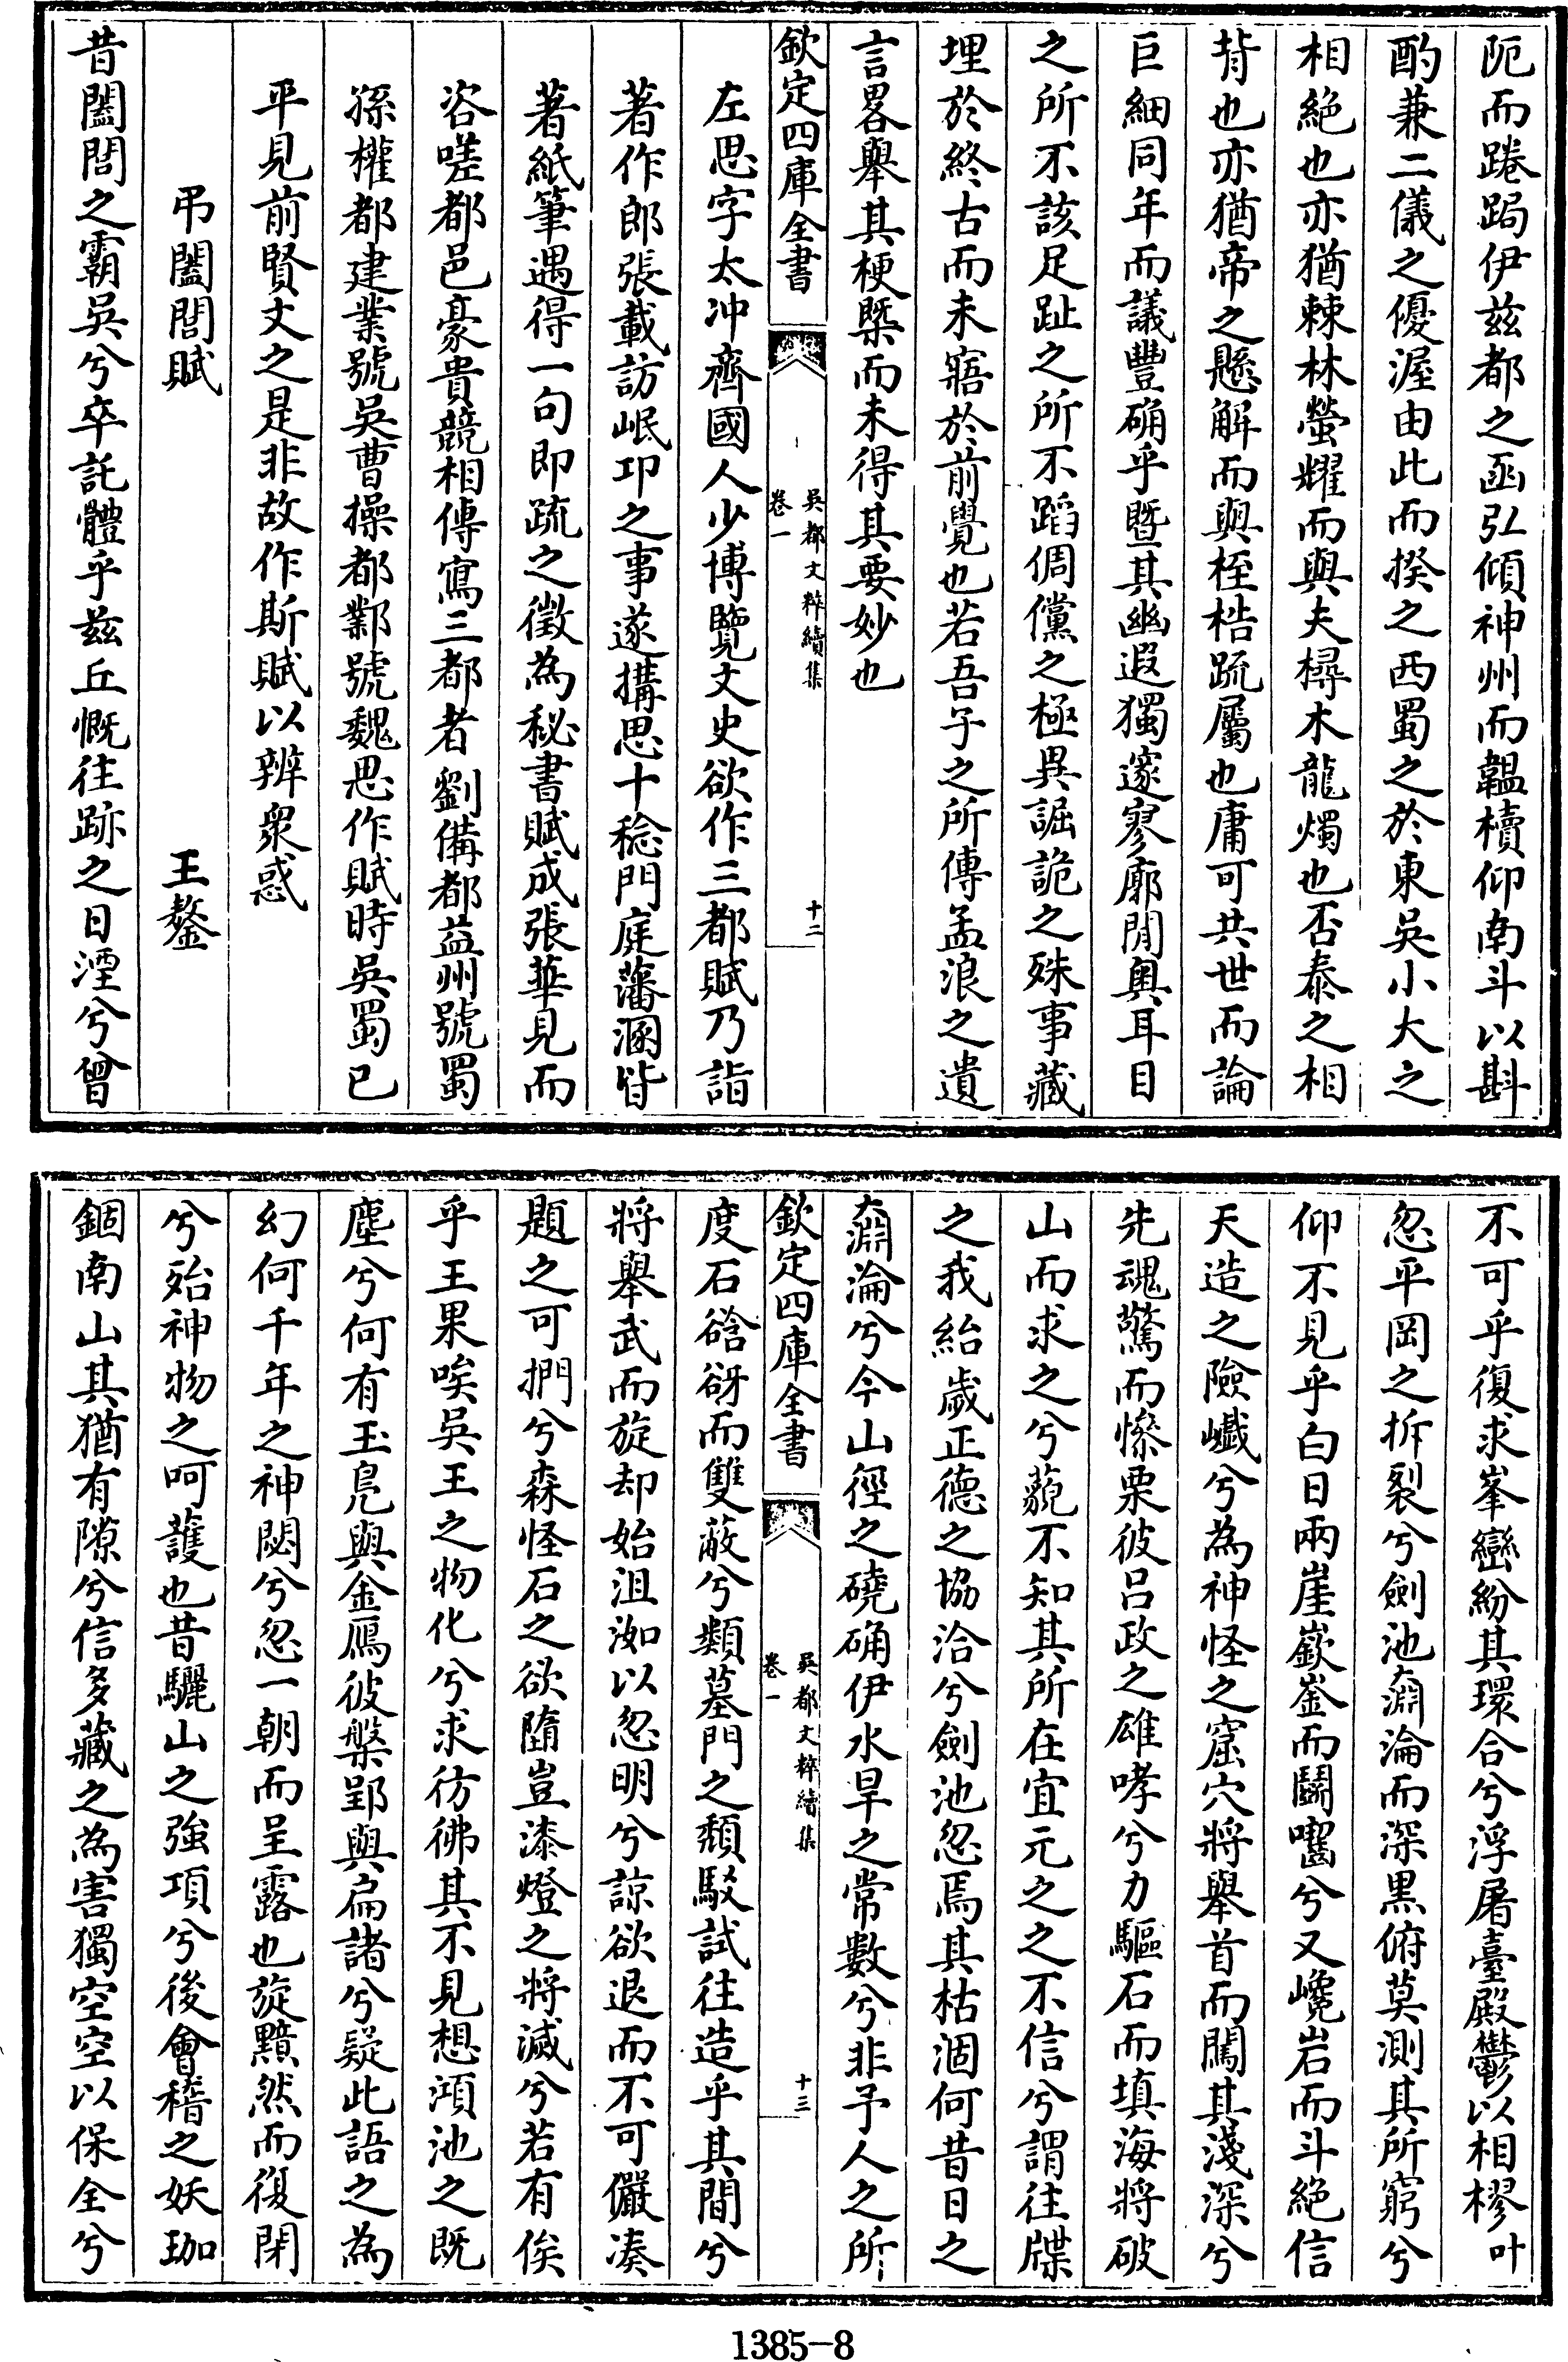 阨而踡跼伊兹都之函弘傾神州而韞櫝仰南斗以斟
酌兼二儀之優渥由此而揆之西蜀之於東吳小大之
相絕也亦猶棘林螢耀而與夫橁木龍燭也否泰之相
背也亦猶帝之懸解而與桎梏疏屬也庸可共世而論
巨細同年而議豐确乎曁其幽遐獨邃寥廓閒奧耳目
之所不該足趾之所不蹈倜儻之極異詘詭之殊事藏
埋於終古而未寤於前覺也若吾子之所傳孟浪之遺
言畧舉其梗槩而未得其要妙也
欽定四庫全書
吳都文粹續集
卷一
十二
左思字太冲齊國人少博覽文史欲作三都賦乃詣
著作郎張載訪岷邛之事遂搆思十稔門庭藩溷皆
著紙筆遇得一句即疏之徵為秘書賦成張華見而
咨嗟都邑豪貴競相傳寫三都者劉備都益州號蜀
孫權都建業號吳曹操都鄴號魏思作賦時吳蜀已
平見前賢文之是非故作斯賦以辨衆惑
弔闔閭賦
王鏊
昔闔閭之霸吳兮卒託體乎兹丘慨往跡之日湮兮曾
不可乎復求峯巒紛其環合兮浮屠臺殿鬱以相樛叶
忽平岡之拆裂兮劍池奫淪而深黑俯莫測其所窮兮
仰不見乎白日兩崖嶔崟而鬬囓兮又巉岩而斗絕信
天造之險巇兮為神怪之窟穴將舉首而闖其淺深兮
先魂驚而慘栗彼吕政之雄哮兮力驅石而填海將破
山而求之兮藐不知其所在宜元之之不信兮謂往牒
之我紿歲正德之協洽兮劍池忽焉其枯涸何昔日之
奫淪兮今山徑之磽确伊水旱之常數兮非予人之所
欽定四庫全書
吳都文粹續集
卷一
十三
度石谽谺而雙蔽兮類墓門之頽駁試往造乎其間兮
將舉武而旋却始沮洳以忽明兮諒欲退而不可儼湊
題之可捫兮森怪石之欲墮豈漆燈之將滅兮若有俟
乎王果唉吳王之物化兮求彷彿其不見想澒池之既
塵兮何有玉凫與金鴈彼槃郢與扁諸兮疑此語之為
幻何千年之神閟兮忽一朝而呈露也旋黯然而復閉
兮殆神物之呵護也昔驪山之強項兮後會稽之妖珈
錮南山其猶有隙兮信多藏之為害獨空空以保全兮
1385-8